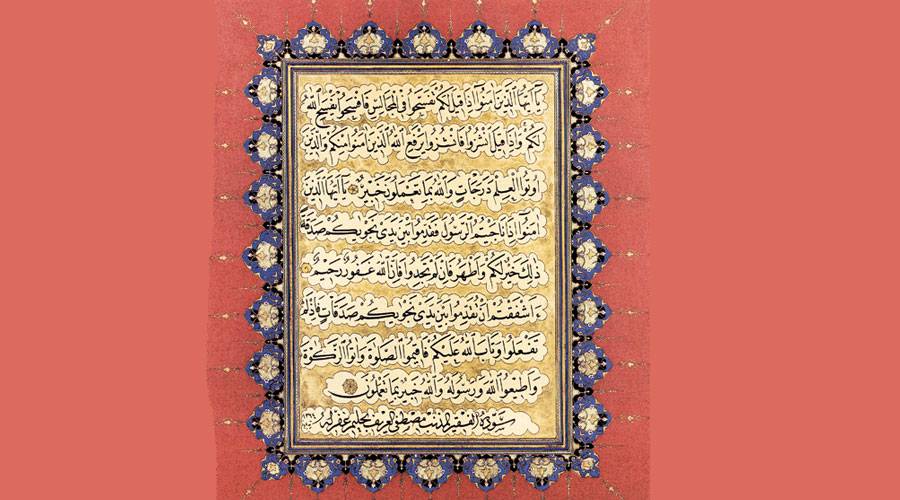 يَا أَيُّهَا الَّذِينَ آمَنُوا إِذَا قِيلَ لَكُمْ تَفَسَّحُوا فِي الْمَجَالِسِ فَافْسَحُوا يَفْسَحِ اللَّهُ
لَكُمْ وَإِذَا قِيلَ انْشُزُوا فَانْشُزُوا يَرْفَعِ اللَّهُ الَّذِينَ آمَنُوا مِنْكُمْ وَالَّذِينَ
أُوتُوا الْعِلْمَ دَرَجَاتٍ وَاللَّهُ بِمَا تَعْمَلُونَ خَبِيرٌ يَا أَيُّهَا الَّذِينَ
آمَنُوا إِذَا نَاجَيْتُمُ الرَّسُولَ فَقَدِّمُوا بَيْنَ يَدَيْ نَجْوَيكُمْ صَدَقَةً
ذَلِكَ خَيْرٌ لَكُمْ وَأَطْهَرُ فَإِنْ لَمْ تَجِدُوا فَإِنَّ اللَّهَ غَفُورٌ رَحِيمٌ
ءَأَشْفَقْتُمْ أَنْ تُقَدِّمُوا بَيْنَ يَدَيْ نَجْوَيكُمْ صَدَقَاتٍ فَإِذْ لَمْ
تَفْعَلُوا وَتَابَ اللَّهُ عَلَيْكُمْ فَأَقِيمُوا الصَّلٰوةَ وَآتُوا الزَّكٰوةَ
وَأَطِيعُوا اللَّهَ وَرَسُولَهُ وَاللَّهُ خَبِيرٌ بِمَا تَعْمَلُونَ
سوده الفقير المذنب مصطفى العريف بحليم غفر له